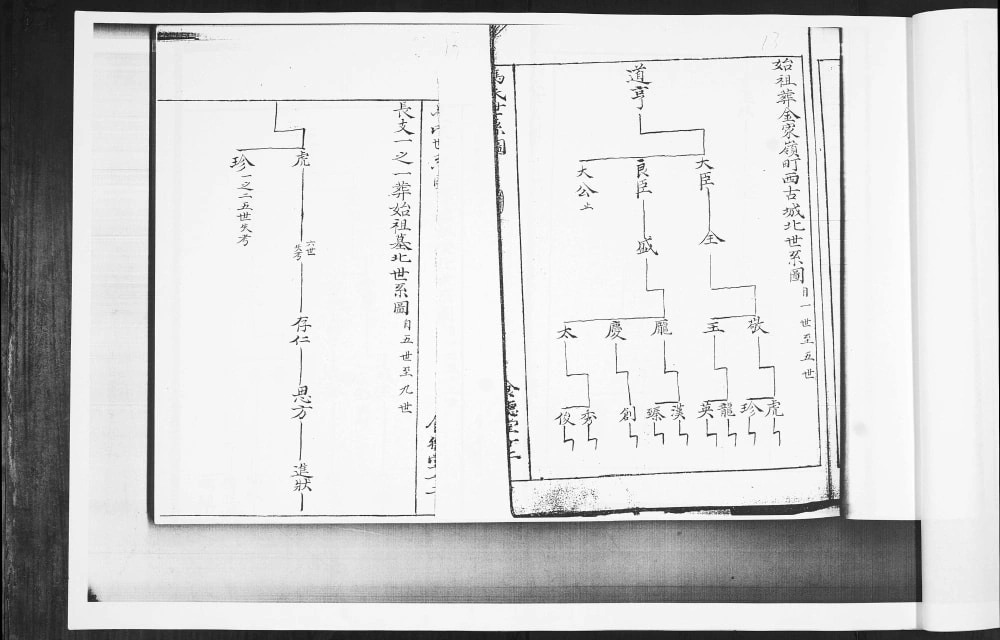 13
始祖葬金家嶺町西古城北世系圖自一世至五世
道亨
大臣
良臣
大公
全
盛
敬
王
龐
慶
太
虎
珍
龍
英
漢
臻
創
秀
俊
長支一之一葬始祖墓北世系圖自五世至九世
虎
六世失考
存仁
思方
進狀
珍一之二五世失考